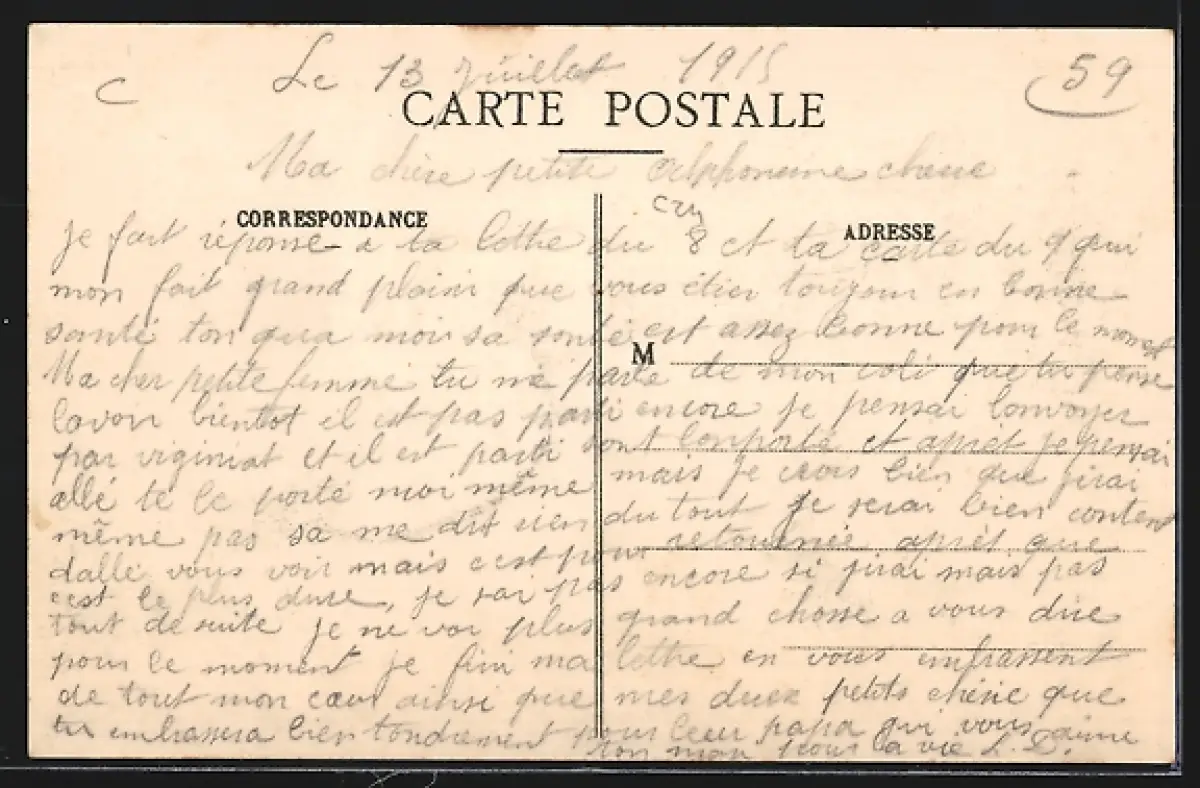 C
Le 13 juillet 1915
59
CARTE POSTALE
Ma chère petite alphonsine cherie
CORRESPONDANCE
ADRESSE
M
je fait réponse a ta lettre du 8 et ta carte du 9 qui
mon fait grand plaisir que vous étier toujour en bonne
santé ton qua moi sa santé est assez bonne pour le moment
Ma cher petite femme tu me parle de mon coli que tu pense
lavoir bientot il est pas parti encore je pensai lonvoyer
par et il est parti sont lonporté et aprèt je pensai
allé te le porté moi même mais je crois bien que jirai
même pas sa me dit rien du tout je serai bien content
dallé vous voir mais cest pour retournée aprèt que
cest le plus dure, je sai pas encore si jirai mais pas
tout de suite je ne voi plus grand chosse a vous dire
pour le moment je fini ma lettre en vous embrassent
de tout mon cœur ainsi que mes deux petits chérie que
tu embrassera bien tondrement pour leur papa qui vous aime
ton mari pour la vie L. D.